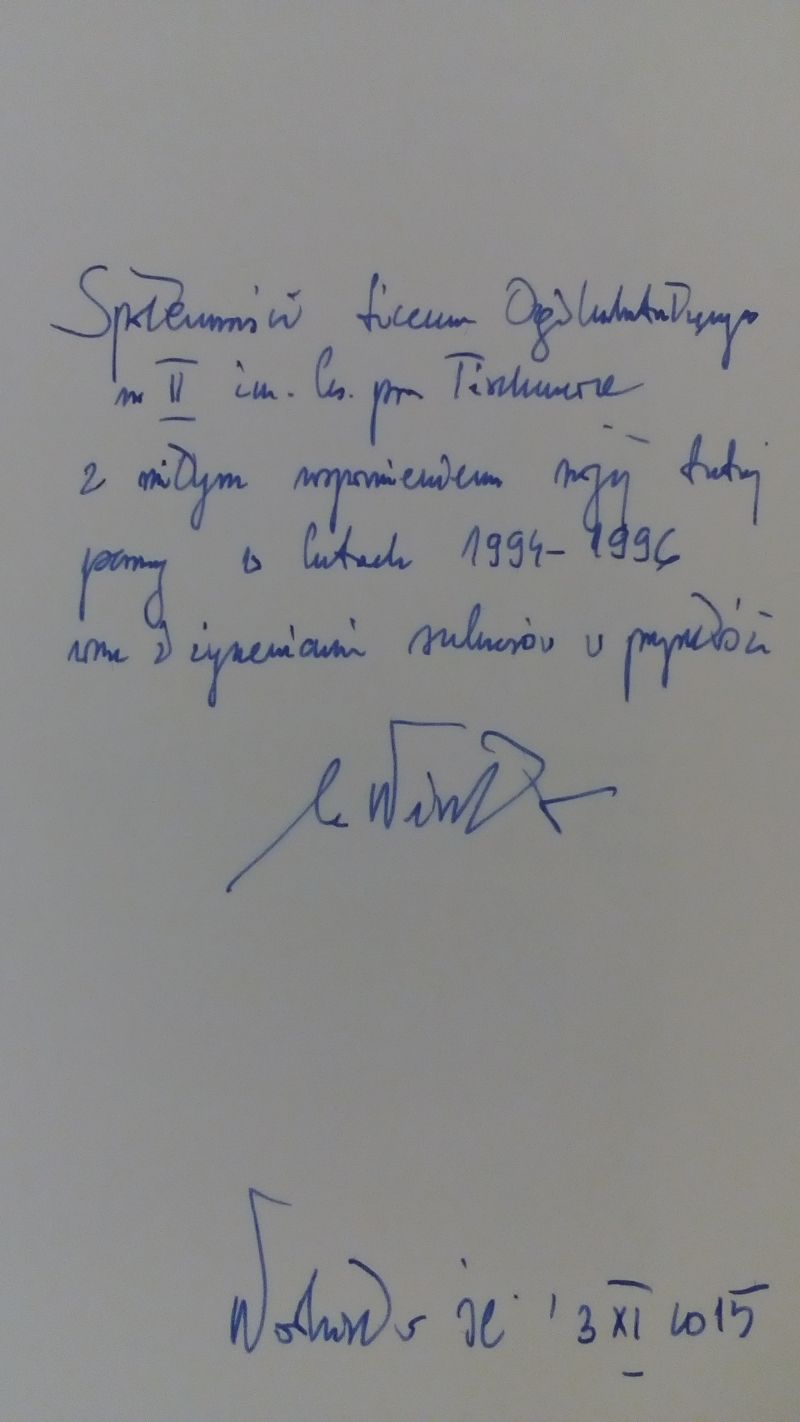 Społeczności Liceum Ogólnokształcącego
nr II im. ks. prof. Tischnera
z miłym wspomnieniem mojej tutaj
pracy w latach 1994-1996
wraz z życzeniami sukcesów w przyszłości
3 XI 2015